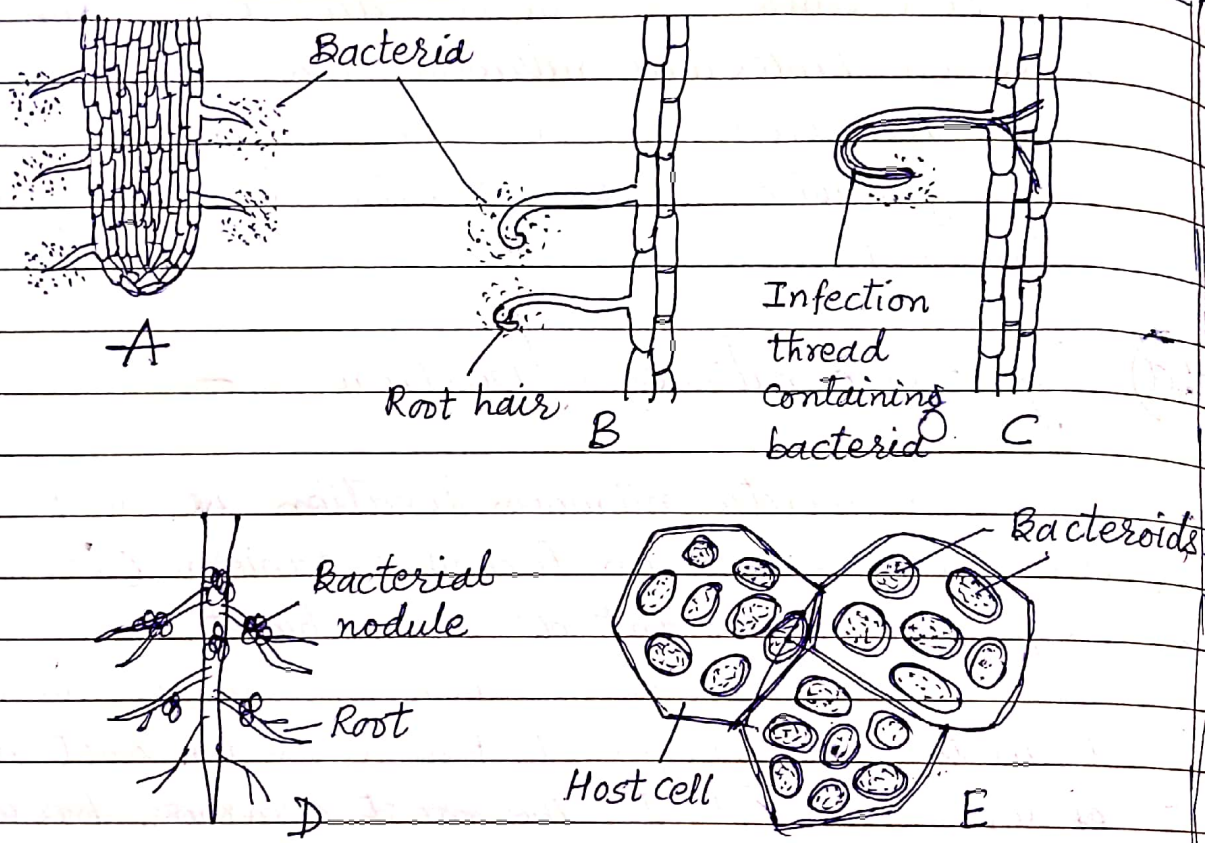 Bacteria
A
Root hair
B
Infection
thread
containing
bacteria
C
Bacterial
nodule
Root
D
Bacteroids
Host cell
E